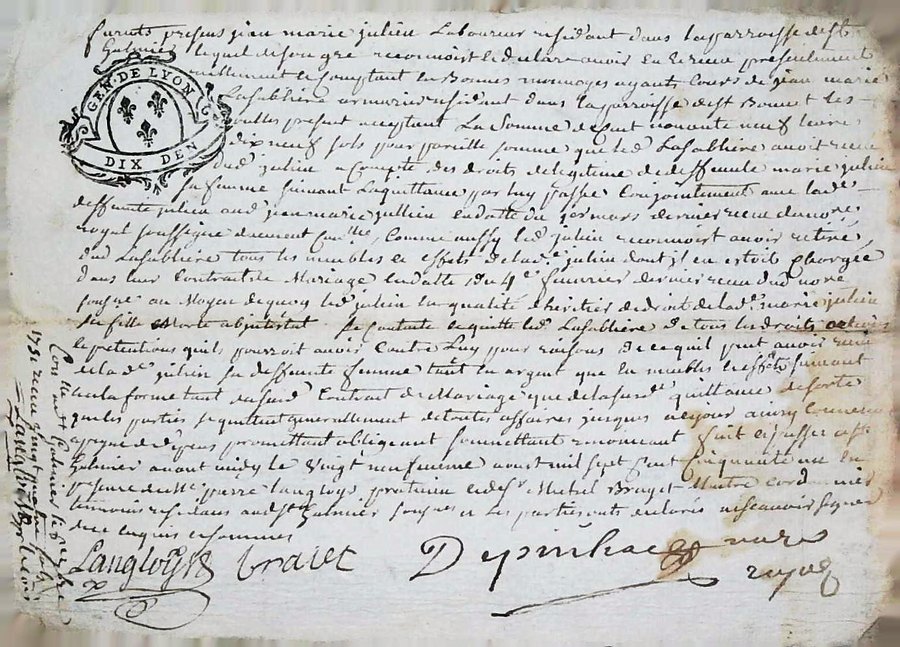 furent presens jean marie julien Laboureur residant dans laparroisse de st
Galmier lequel de son gré reconnoist et declare avoir eu et receu presentement
reellement et comptant en Bonnes monnoyes ayants Cours de jean marie
Lasabliere armurier residant dans laparroisse de st Bonnet les
present acceptant La Somme de cent nonante neuf livre
dix neuf sols pour pareille somme que led Lasabliere avoit receu
dud julien a Compte des droits de legitime de deffunte marie julien
sa femme suivant La quittance par luy passé Conjointement avec lade
deffunte julien aud jean marie jullien en datte du mars dernier receu du nore
royal soussigné dument Comme aussy led julien reconnoist avoir retiré
dud Lasabliere tous les meubles et effets de lade julien dont il en estoit chargée
dans leur Contrat de Mariage en datte du 4e fevrier dernier receu dud nore
sousné au Moyen de quoy led julien en qualité dheritier de droit de lade marie julien
sa fille Morte abjntestat se contente et quitte led Lasabliere de tous les droits actions
et petentions quils pourroit avoir Contre Luy pour raisons de ce quil peut avoir receu
de lade julien sa deffunte femme tant en argent que en meubles et effets suivant
et en la forme tant dususd Contrat de Mariage que de lasusde quittance de sorte
que les parties se quittent generallement de touttes affaires jusques a cejour
a peyne de depens promettant obligeant soumettant renonceant fait et passé a st
Galmier avant midy le Vingt neufvieme aoust mil sept cent cinquante un en
presence de Me pierre Langloys praticien et de sr Michel Brayet Maitre cordonnier
temoins residans aud st Galmier sousnes et les parties ont declarés ne scavoir signer
de ce enquis et sommes
Langloys braiet Depinhac nore
royal
GEN. DE LYON
DIX DEN
Conlle a st Galmier le septbre
1751 receu vingt quatre sols
Langloys